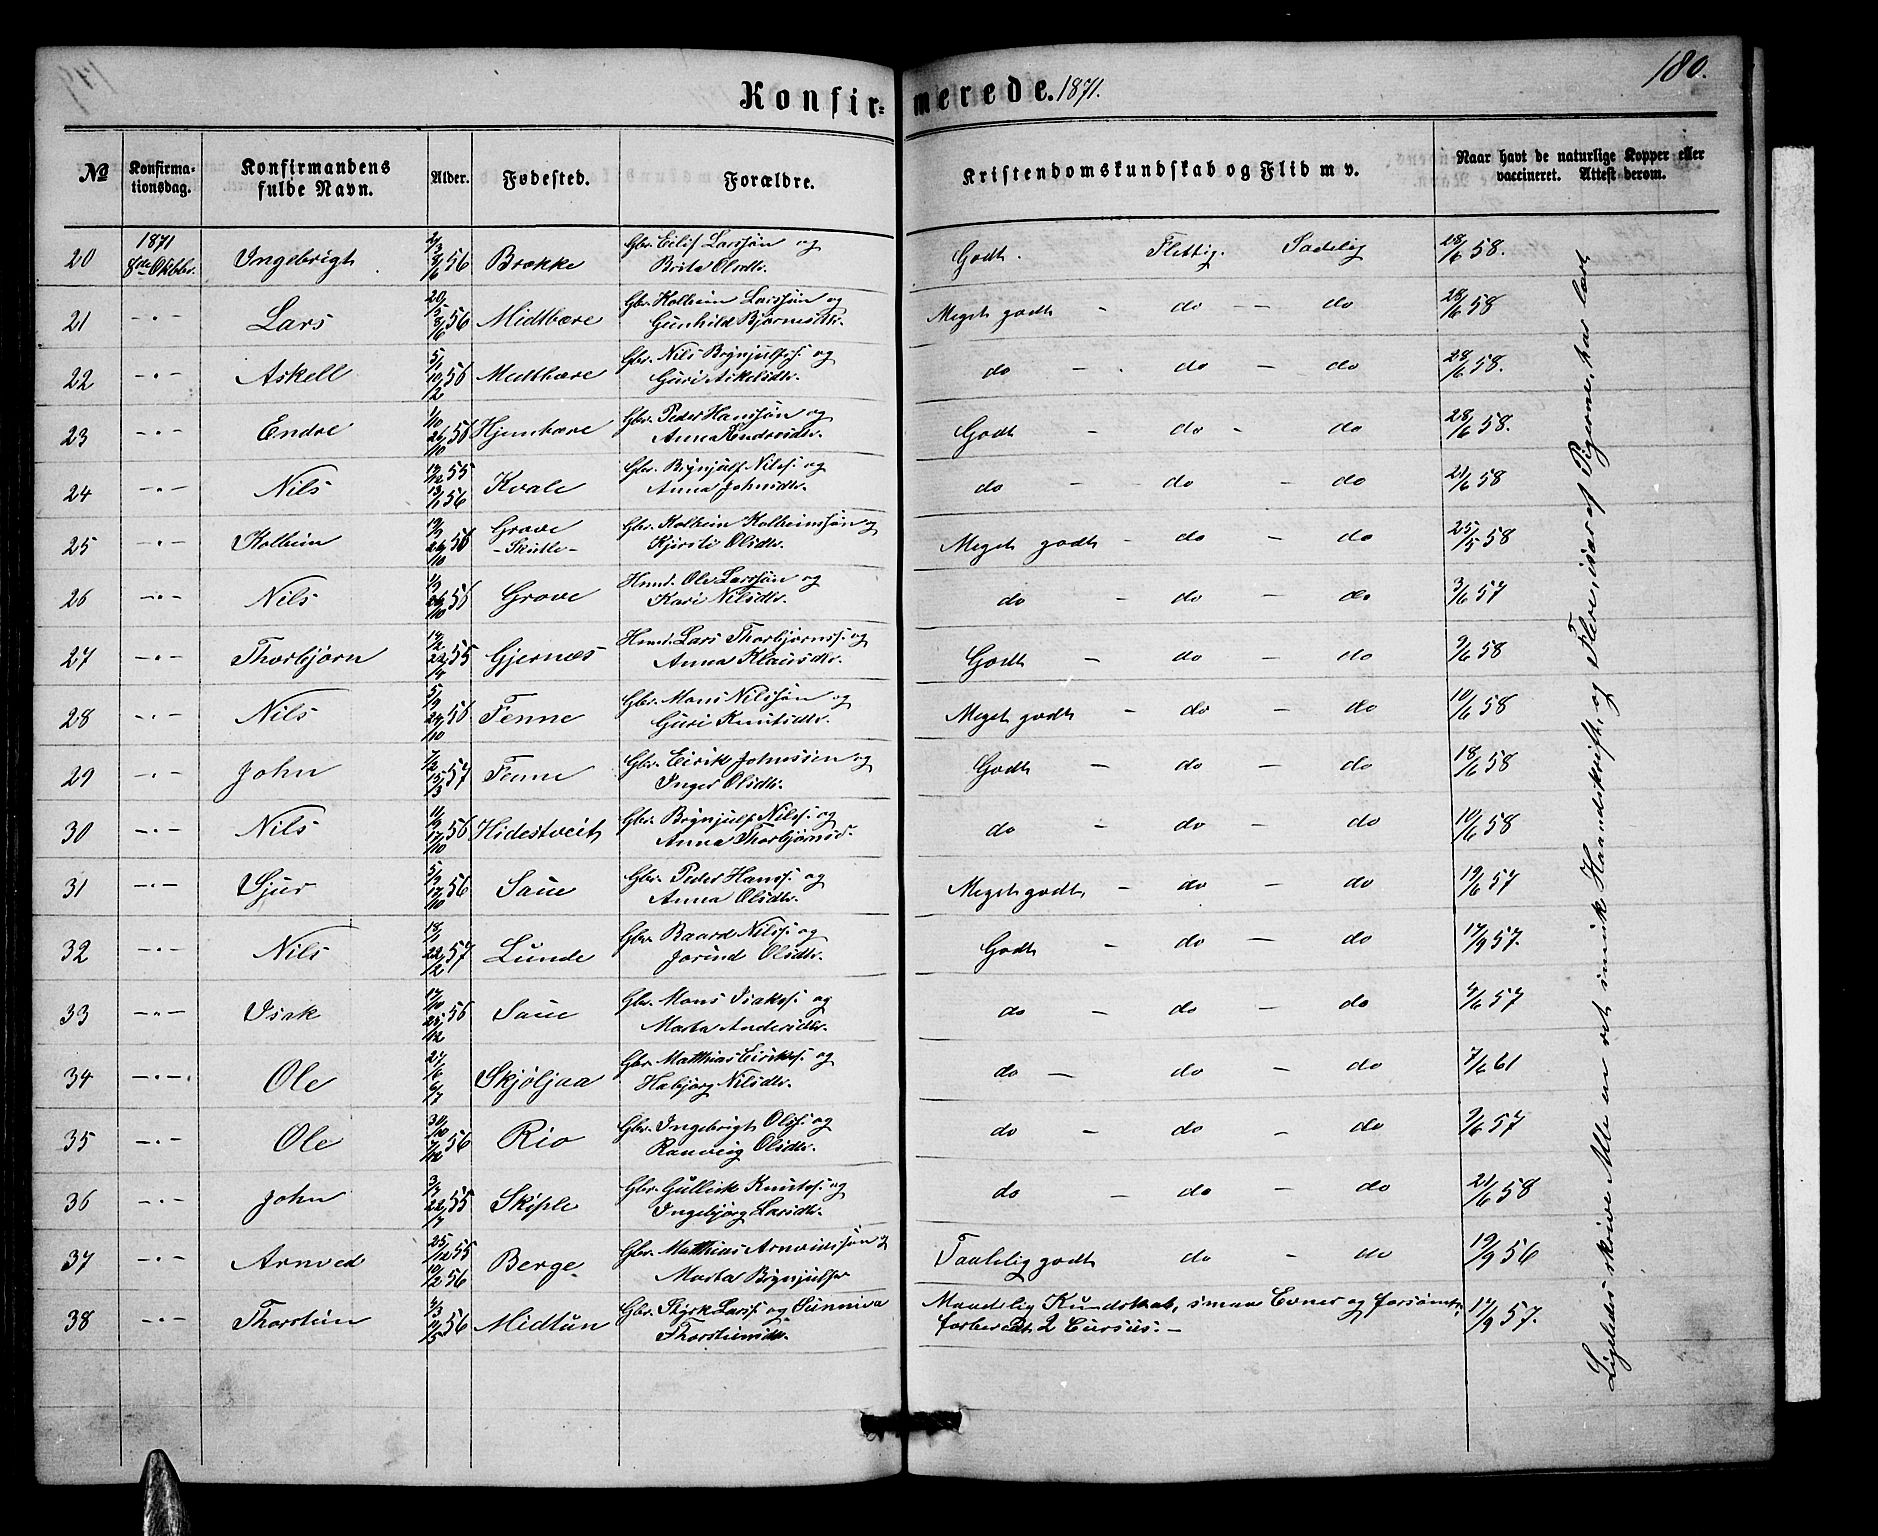 180.
Konfir= merede. 1871.
No Konfirma-tionsdag. Konfirmandens fulde Navn. Alder. Fødested. Forældre. Kristendomskundskab og Flid m v. Naar havt de naturlige Kopper eller vaccineret. Attest derom.
20 1871 8de Oktbr. Ingebrigt 56 Brække Gbr. Eilif Larssøn og Brita Olsdtr. Godt. Flittig. Sædelig 28/6 58.
21 -"- Lars 20/5 8/6 56 Midtbære Gbr. Kolbein Larssøn og Gunhild Bjørnsdtr. Meget godt - do - - do 28/6 58
22 -"- Askell 5/1 10/2 56 Midtbære Gbr. Nils Brynjulfss. og Guri Askelsdtr. do - do - do 28/6 58.
23 -"- Endre 1/10 26/10 56 Hjembære Gbr. Peder Hanssøn og Anna Endresdtr. Godt - do - do 28/6 58.
24 -"- Nils 55 13/1 56 Kvale Gbr. Brynjulf Nilss. og Anna Johnsdtr. do - do - do 21/6 58
25 -"- Kolbein 19/9 26/10 56 Grove -Skutle- Gbr. Kolbein Kolbeinssøn og Kjersti Olsdtr. Meget godt - do - do 25/5 58
26 -"- Nils 1/9 26/10 56 Grove Hmd. Ole Larssøn og Kari Nilsdtr. do - do - do 3/6 57
27 -"- Thorbjørn 55 Gjernes Hmd. Lars Thorbjørnss. og Anna Klausdtr. Godt - do - do 9/6 58
28 -"- Nils 5/9 24/10 56 Fenne Gbr. Mons Nilssøn og Guri Knutsdtr. Meget godt - do - do 10/6 58
29 -"- John 7/2 15/3 57 Fenne Gbr. Eirik Johnssøn og Inger Olsdtr. Godt - do - do 18/6 58
30 -"- Nils 11/9 17/10 56 Hidestveit Gbr. Brynjulf Nilss. og Anna Thorbjørnsd. do - do - do 10/6 58
31 -"- Sjur 5/9 17/10 56 Saue Gbr. Peder Hanss. og Anna Olsdtr. Meget godt - do - do 19/6 57
32 -"- Nils 18/1 22/2 57 Lunde Gbr. Baard Nilss. og Jorind Olsdtr. Godt - do - do 17/9 57.
33 -"- Isak 17/10 25/12 56 Saue Gbr. Mons Isaks. og Marta Andersdtr. do - do - do 4/6 57
34 -"- Ole 27/6 6/7 Skjøljaa Gbr. Matthias Eiriks. og Habjørg Nilsdtr. do - do - do 7/6 61
35 -"- Ole 30/10 7/12 56 Rio Gbr. Ingebrigt Olss. og Ranveig Olsdtr. do - do - do 9/6 57
36 -"- John 3/7 22/7 55 Skiple Gbr. Gullick Knutss. og Ingebjørg Larsdtr. do - do - do 21/6 58
37 -"- Arnved 25/12 55 10/2 56 Berge Gbr. Matthias Arnvidssøn og Marta Brynjulfsr Taalelig godt do - do 19/9 56
38 -"- Thorstein 56 Midtun Gbr. Styrk Larss. og Sunniva Thorsteinsdtr. Maadelig Kundskab, smaa Evner og forsømt, forberedt 2 Cursus. - 17/9 57.
Ligeledes skrive Alle en ret smuk Haandskrift, og Flere, især af Pigerne, har lært